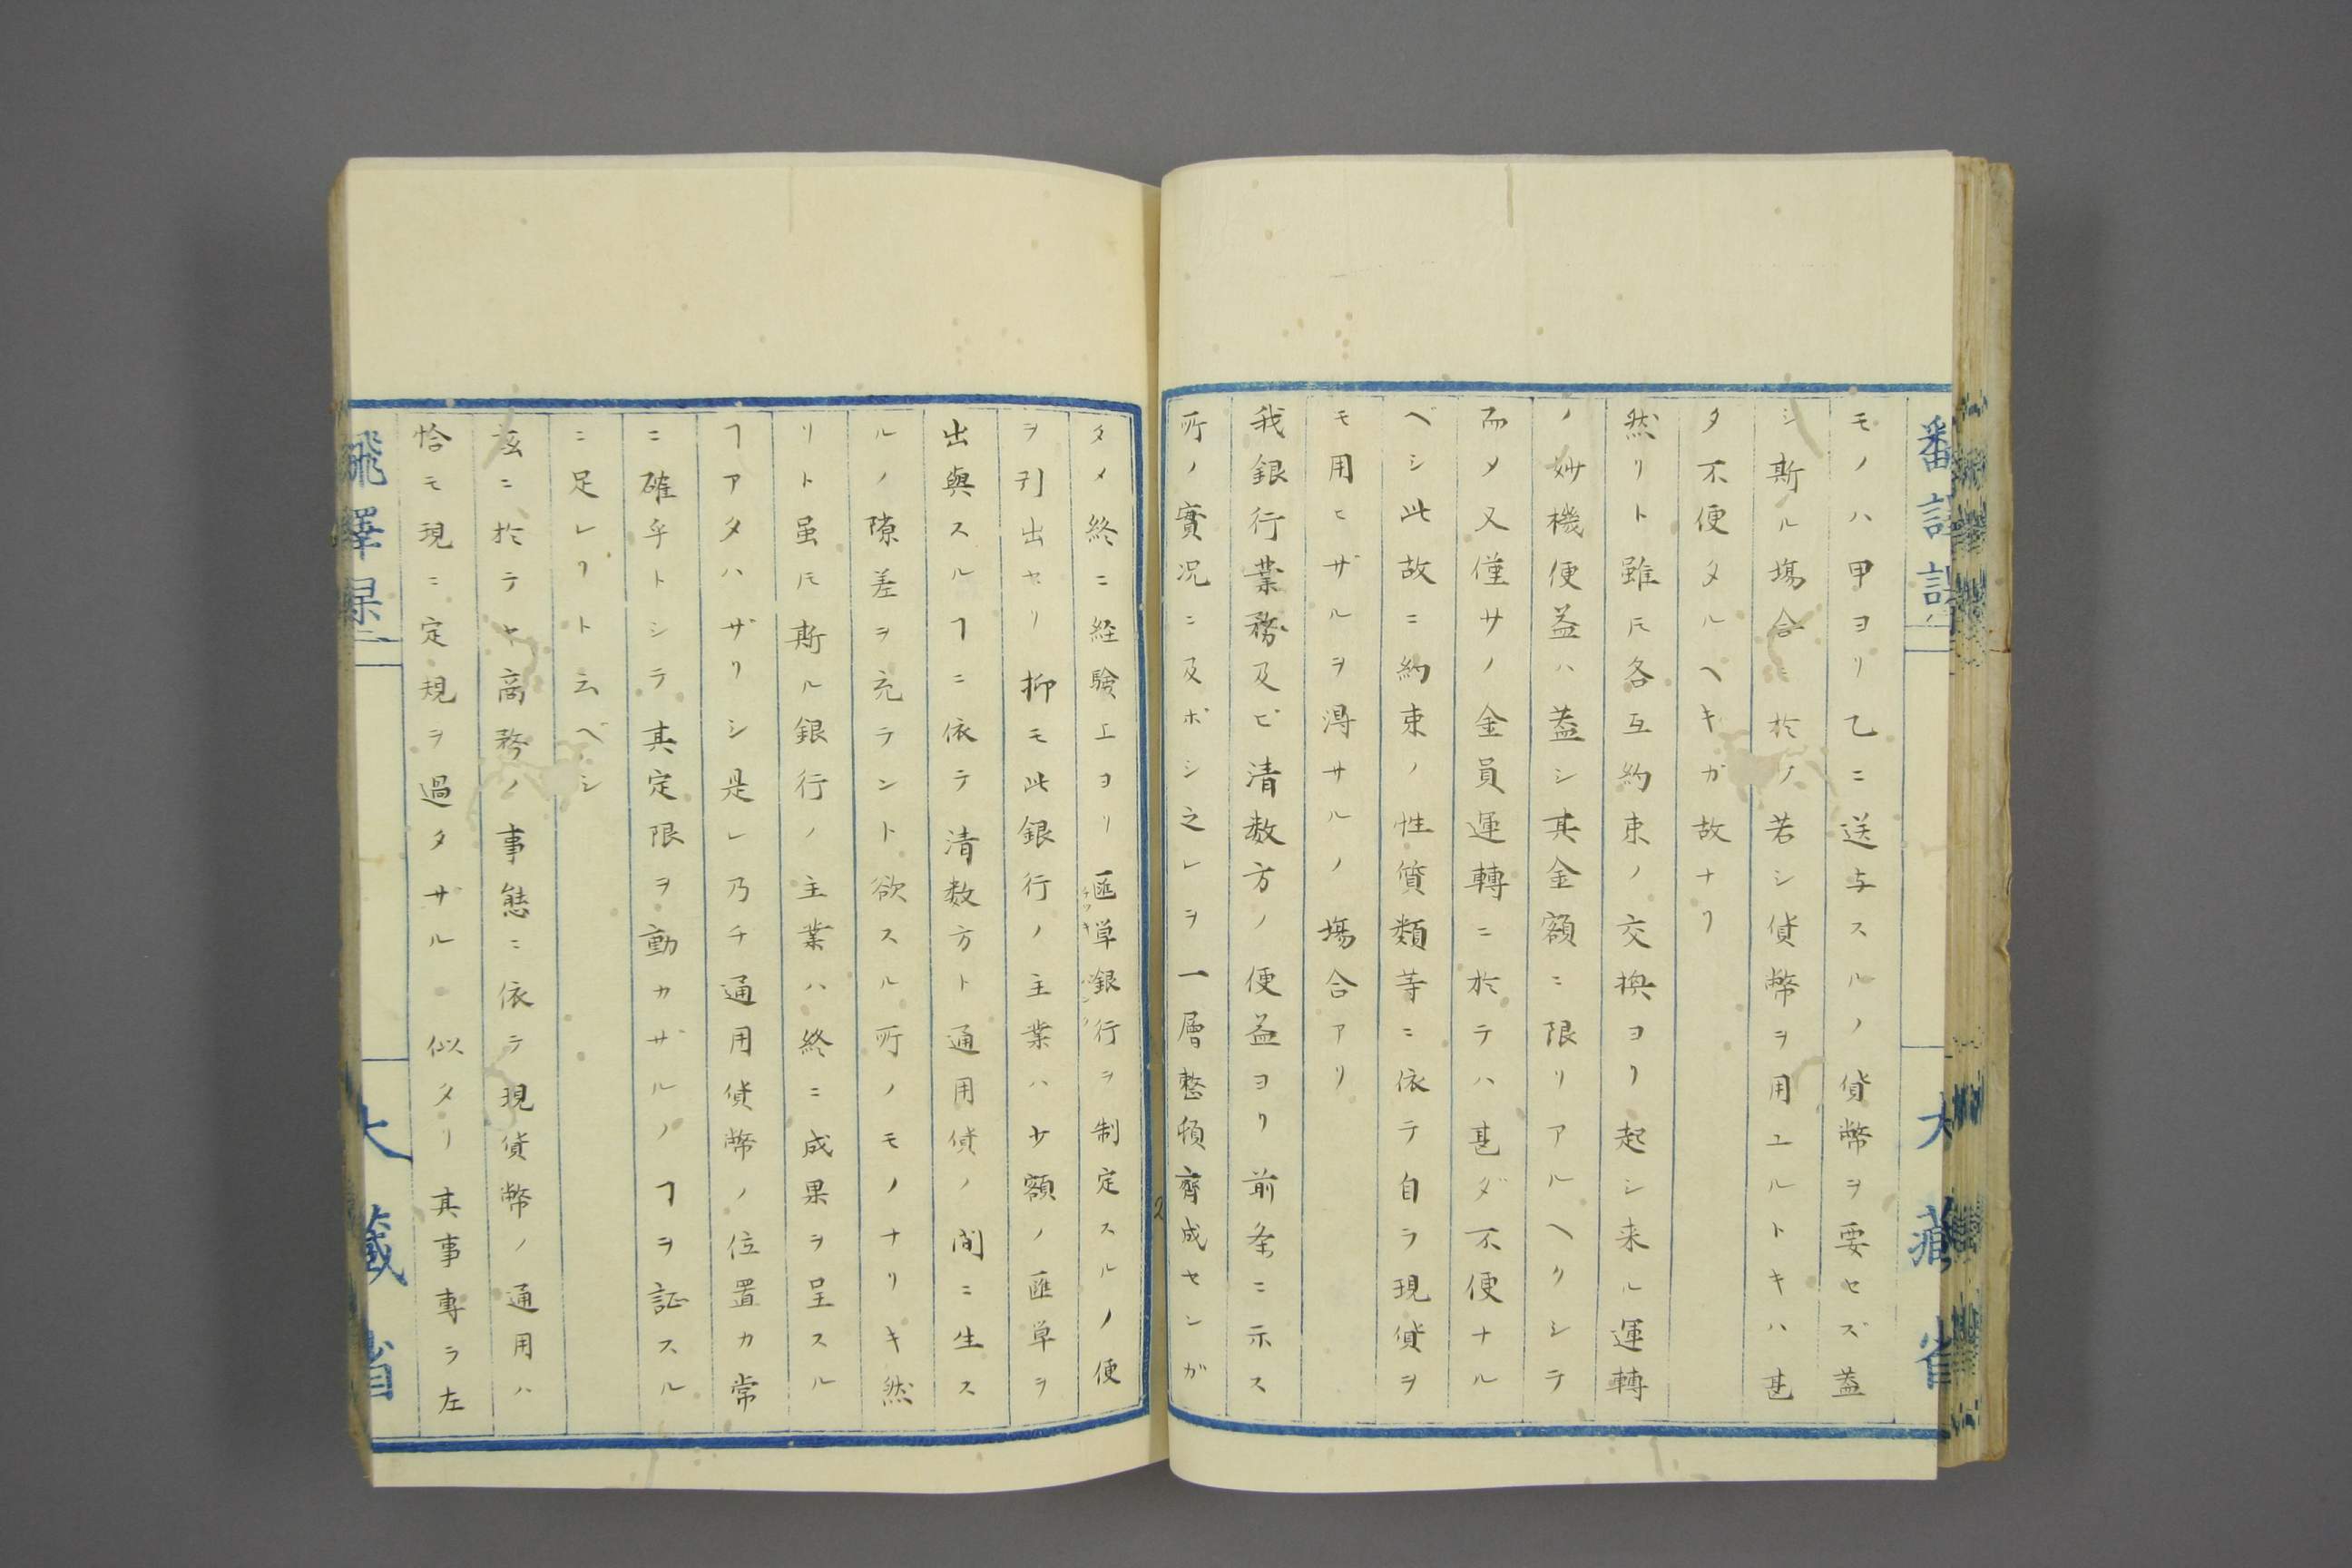 モノハ甲ヨリ乙ニ送与スルノ貨幣ヲ要セズ蓋
シ斯ル塲合ニ於ノ若シ貨幣ヲ用ユルトキハ甚
タ不便タルヘキガ故ナリ
然リト雖𪜈各互約束ノ交換ヨリ起シ来ル運轉
ノ妙機便益ハ蓋シ其金額ニ限リアルヘクシテ
而メ又僅サノ金員運轉ニ於テハ甚ダ不便ナル
ベシ此故ニ約束ノ性質類等ニ依テ自ラ現貨ヲ
モ用ヒザルヲ得サルノ塲合アリ
我銀行業務及ビ清数方ノ便益ヨリ前条ニ示ス
所ノ實况ニ及ボシ之レヲ一層整頓齊成センガ
タメ終ニ経驗上ヨリ匯単銀行ヲ制定スルノ便
ヲ引出セリ抑モ此銀行ノ主業ハ少額ノ匯単ヲ
出與スルヿニ依テ清数方ト通用貨ノ間ニ生ス
ルノ隙差ヲ充テント欲スル所ノモノナリキ然
リト虽𪜈斯ル銀行ノ主業ハ終ニ成果ヲ呈スル
ヿアタハザリシ是レ乃チ通用貨幣ノ位置カ常
ニ確乎トシテ其定限ヲ動カザルノヿヲ証スル
ニ足レリト云ベシ
玆ニ於テヤ商務ノ事態ニ依テ現貨幣ノ通用ハ
恰モ現ニ定規ヲ過タザルニ似タリ其事專ラ左
大藏省
大藏省